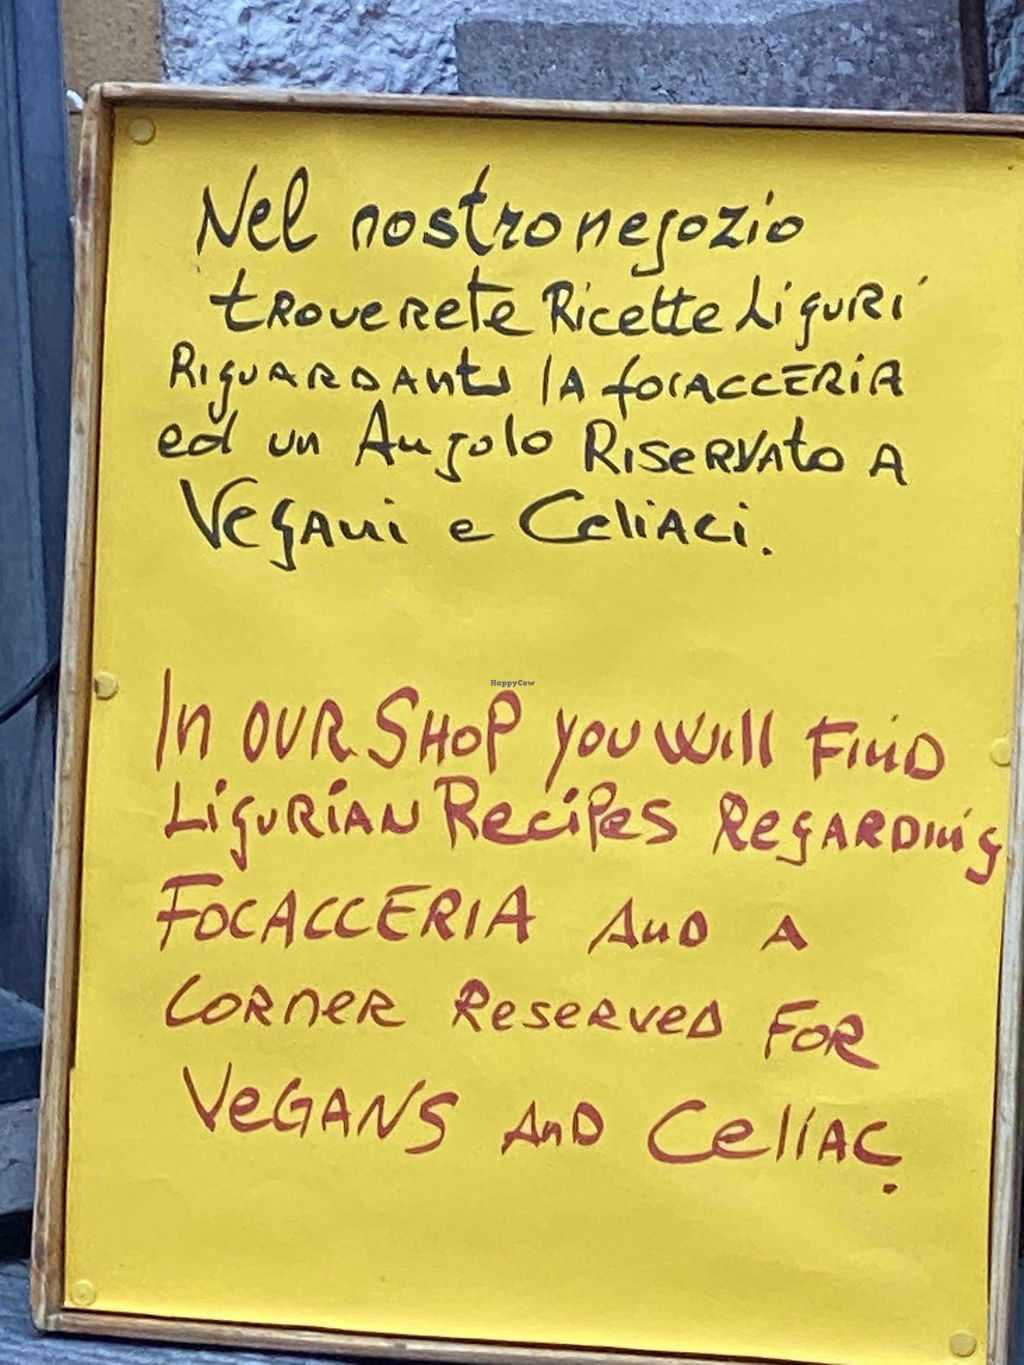 Nel nostro negozio
troverete Ricette Liguri
Riguardanti la focacceria
ed un Angolo Riservato a
Vegani e Celiaci.
HappyCow
In our Shop you will Find
Ligurian Recipes Regarding
Focacceria and a
corner Reserved For
Vegans and Celiac.